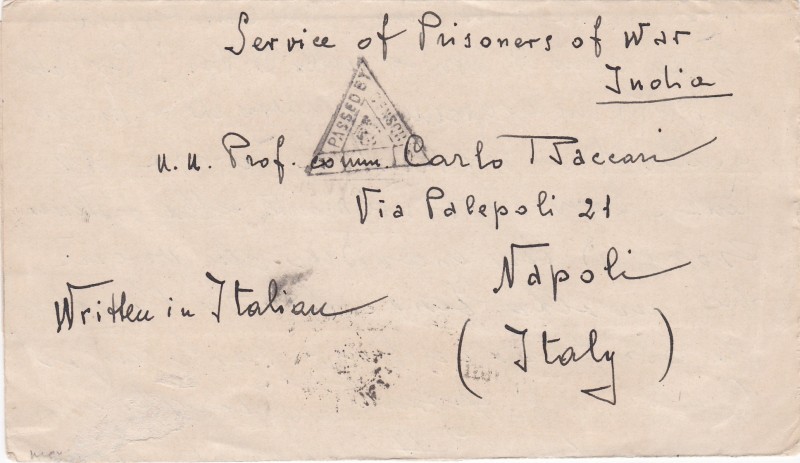 Service of Prisoners of War
India
PASSED BY CENSOR
n.n. Prof. comm. Carlo
Via Palepoli 21
Napoli
Written in Italian
(Italy)